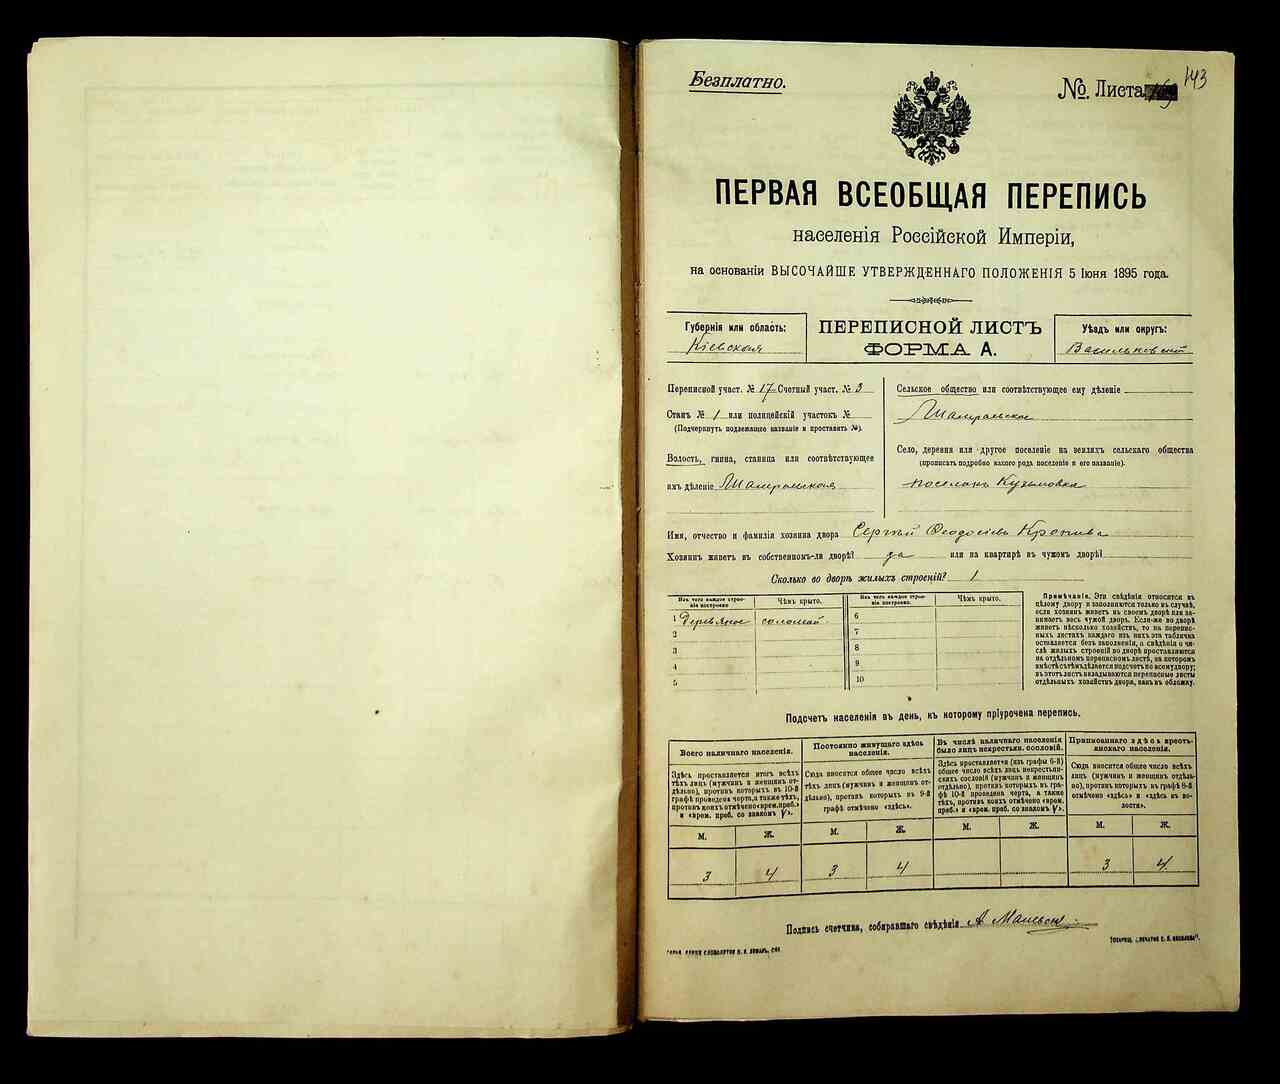 Безплатно.
№. Листа 143
ПЕРВАЯ ВСЕОБЩАЯ ПЕРЕПИСЬ
населенія Россійской Имперіи,
на основаніи ВЫСОЧАЙШЕ УТВЕРЖДЕННАГО ПОЛОЖЕНІЯ 5 Іюня 1895 года.
Губернія или область:
Кіевская
ПЕРЕПИСНОЙ ЛИСТЪ
ФОРМА А.
Уѣздъ или округъ:
Васильковскій
Переписной участ. № 17 Счетный участ. № 3
Станъ № 1 или полицейскій участокъ №
(Подчеркнуть подлежащее названіе и проставить №).
Волость, гмина, станица или соотвѣтствующее
имъ дѣленіе
Сельское общество или соотвѣтствующее ему дѣленіе
Село, деревня или другое поселеніе на земляхъ сельскаго общества
(прописать подробно какого рода поселеніе и его названіе).
поселокъ Кузьмовка
Имя, отчество и фамилія хозяина двора Сергѣй Ѳеодосіевъ Кропива
Хозяинъ живетъ въ собственномъ-ли дворѣ? да или на квартирѣ въ чужомъ дворѣ?
Сколько во дворѣ жилыхъ строеній? 1
Изъ чего каждое строеніе построено
Чѣмъ крыто.
Изъ чего каждое строеніе построено.
Чѣмъ крыто.
1 Деревяное соломой
2
3
4
5
6
7
8
9
10
Примѣчаніе. Эти свѣдѣнія относятся къ
цѣлому двору и заполняются только въ случаѣ,
если хозяинъ живетъ въ своемъ дворѣ или занимаетъ
весь чужой дворъ. Если-же во дворѣ
живетъ нѣсколько хозяйствъ, то на переписныхъ
листахъ каждаго изъ нихъ эта табличка
оставляется безъ заполненія, а свѣдѣнія о числѣ
жилыхъ строеній во дворѣ проставляются
на отдѣльномъ переписномъ листѣ, на которомъ
вмѣстѣ съ тѣмъ дѣлается подсчетъ по всему двору;
въ этотъ листъ вкладываются переписные листы
отдѣльныхъ хозяйствъ двора, какъ въ обложку.
Подсчетъ населенія въ день, къ которому пріурочена перепись.
Всего наличнаго населенія.
Здѣсь проставляется итогъ всѣхъ
тѣхъ лицъ (мужчинъ и женщинъ отдѣльно),
противъ которыхъ въ 10-й
графѣ проведена черта, а также тѣхъ,
противъ коихъ отмѣчено «врем. преб.»
и «врем. преб. со знакомъ V».
Постоянно живущаго здѣсь
населенія.
Сюда вносится общее число всѣхъ
тѣхъ лицъ (мужчинъ и женщинъ отдѣльно),
противъ которыхъ въ 9-й
графѣ отмѣчено «здѣсь».
Въ числѣ наличнаго населенія
было лицъ некрестьян. сословій.
Здѣсь проставляется (изъ графы 6-й)
общее число всѣхъ лицъ некрестьянскихъ
сословій (мужчинъ и женщинъ
отдѣльно), противъ которыхъ въ графѣ
10-й проведена черта, а также
тѣхъ, противъ коихъ отмѣчено «врем.
преб.» и «врем. преб. со знакомъ V».
Приписаннаго здѣсь крестьянскаго
населенія.
Сюда вносится общее число всѣхъ
лицъ (мужчинъ и женщинъ отдѣльно),
противъ которыхъ въ графѣ 8-й
отмѣчено «здѣсь» и «здѣсь въ волости».
М. Ж. М. Ж. М. Ж. М. Ж.
3 4 3 4 3 4
Подпись счетчика, собиравшаго свѣдѣнія А.